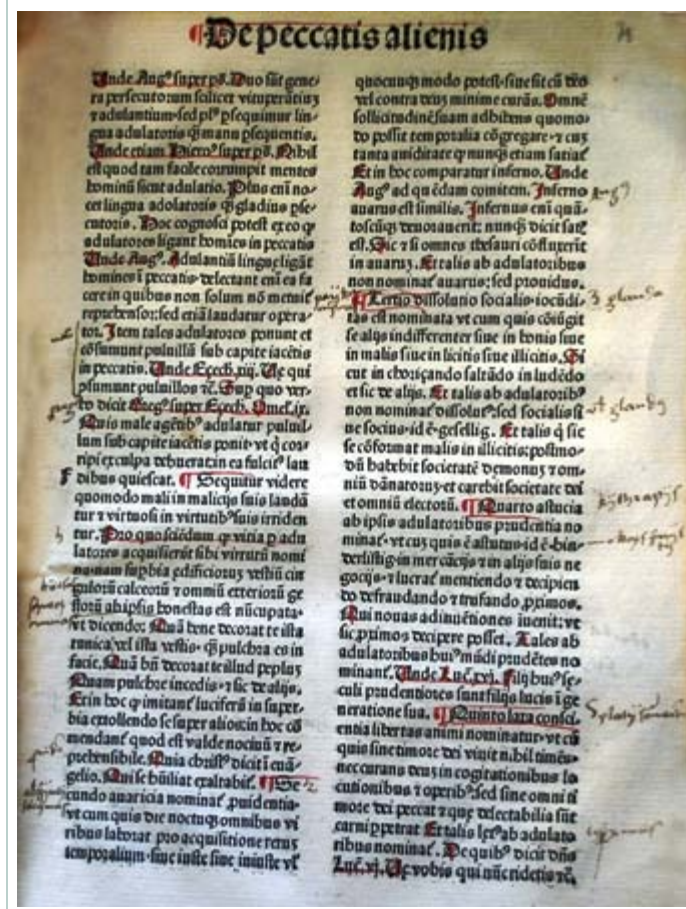 De peccatis alienis
Unde Augꝰ super ps. Duo sūt gene-
ra persecutorum scilicet vituperātiuꝫ
⁊ adulantium·sed plꝰ psequimur lin-
gua adulatoris ꝙ̄ manu psequentis.
Unde etiam Hieroꝰ super ps. Nihil
est quod tam facile corrumpit mentes
hominū sicut adulatio. Plus enī no-
cet lingua adolatoris ꝙ̄ gladius pse-
cutoris. Hoc cognosci potest ex eo ꝙ
adulatores ligant homīes in peccatis
Unde Augꝰ. Adulantiū lingue ligāt
homines ī peccatis·delectant enī ea fa
cere in quibus non solum nō metuit̄
reprehensor: sed etiā laudatur opera-
tor. Item tales adulatores ponunt et
cōsumunt puluillū sub capite iacētis
in peccatis. Unde Ezech. xiij. Ue qui
psumunt puluillos ⁊c̄. Sup quo ver-
bo dicit Gregꝰ super Ezech. Omel. ix.
Quis male agētibꝰ adulatur puluil-
lum sub capite iacētis ponit·vt q̇ cor-
ripi ex culpa debuerat·in ea fulcitꝰ lau
dibus quiescat. ¶ Sequitur videre
quomodo mali in malicijs suis laudā
tur ⁊ virtuosi in virtutibꝰ suis irriden
tur. Pro quo sciēdum ꝙ vitia p adu
latores acquisierūt sibi virtutū nomī
na·nam supbia edificioruꝫ vestiū cin
gulorū calceorū ⁊ omniū exteriorū ge
storū ab ipsis honestas est nūcupata·
vt dicendo: Quā bene decorat te ista
tunica vel ista vestis· ꝙ̄ pulchra es in
facie. Quā bn̄ decorat te illud pepluꝫ
Quam pulchre incedis·⁊ sic de alijs.
Et in hoc ꝙ imitant̄ luciferū in super-
bia extollendo se super alios·in hoc cō
mendant̄ quod est valde nociuū ⁊ re-
prehensibile. Quia christꝰ dicit ī euā-
gelio. Qui se hūiliat exaltabit̄. ¶ Se-
cundo auaricia nominat̄ ꝓuidentia·
vt cum quis die noctuqꝫ omnibus vi
ribus laborat pro acquisitione reruꝫ
temporalium·siue iuste siue iniuste vl̓
quocunqꝫ modo potest·siue sit cū deo
vel contra deuꝫ minime curās. Omnē
sollicitudinē suam adhibens quomo-
do possit temporalia cōgregare·⁊ cuꝫ
tanta auiditate ꝙ nunqꝫ etiam satiat̄
Et in hoc comparatur inferno. Unde
Augꝰ ad quēdam comitem. Inferno
auarus est similis. Infernus enī quā-
toscūqꝫ deuorauerit: nunqꝫ dicit sat
est. Sic ⁊ si omnes thesauri cōfluxerīt
in auaruꝫ. Et talis ab adulatoribus
non nominat̄ auarus: sed prouidus.
¶ Tertio dissolutio socialis·iocūdi-
tas est nominata·vt cum quis cōiūgit
se alijs indifferenter siue in bonis siue
in malis siue in licitis siue illicitis. Si
cut in chorizando saltādo in ludēdo
et sic de alijs. Et talis ab adulatoribꝰ
non nominat̄ dissolutꝰ: sed socialis si
ne socius·id ē·gesellig. Et talis q̇ sic
se cōformat malis in illicitis: postmo-
dū habebit societatē demonuꝫ ⁊ om-
niū dānatoruꝫ·et carebit societate dei
et omniū electorū. ¶ Quarto astucia
ab ipsis adulatoribus prudentia no
minat̄·vt cuꝫ quis ē astutus·id ē·hin-
derlistig·in mercācijs ⁊ in alijs suis ne
gocijs·⁊ lucrat̄ mentiendo ⁊ decipien
do defraudando ⁊ trufando ꝓximos.
Qui nouas adinuētiones inuenit: vt
sic ꝓximos decipere posset. Tales ab
adulatoribus huiꝰ mūdi prudētes no
minant̄. Unde Luc̄. xvj. Filij huiꝰ se-
culi prudentiores sunt filijs lucis ī ge
neratione sua. ¶ Quinto lata consci-
entia libertas animi nominatur·vt cū
quis sine timore dei viuit nihil timēs·
nec curans deuꝫ in cogitationibus lo
cutionibus ⁊ operibꝰ: sed sine omni ti
more dei peccat ⁊ queqꝫ delectabilia sūt
carni ꝑpetrat Et talis ab adulato
ribus nominat̄. De quibꝰ dicit dn̄s
Luc̄. vj. Ue vobis qui nūc ridetis ⁊c̄.